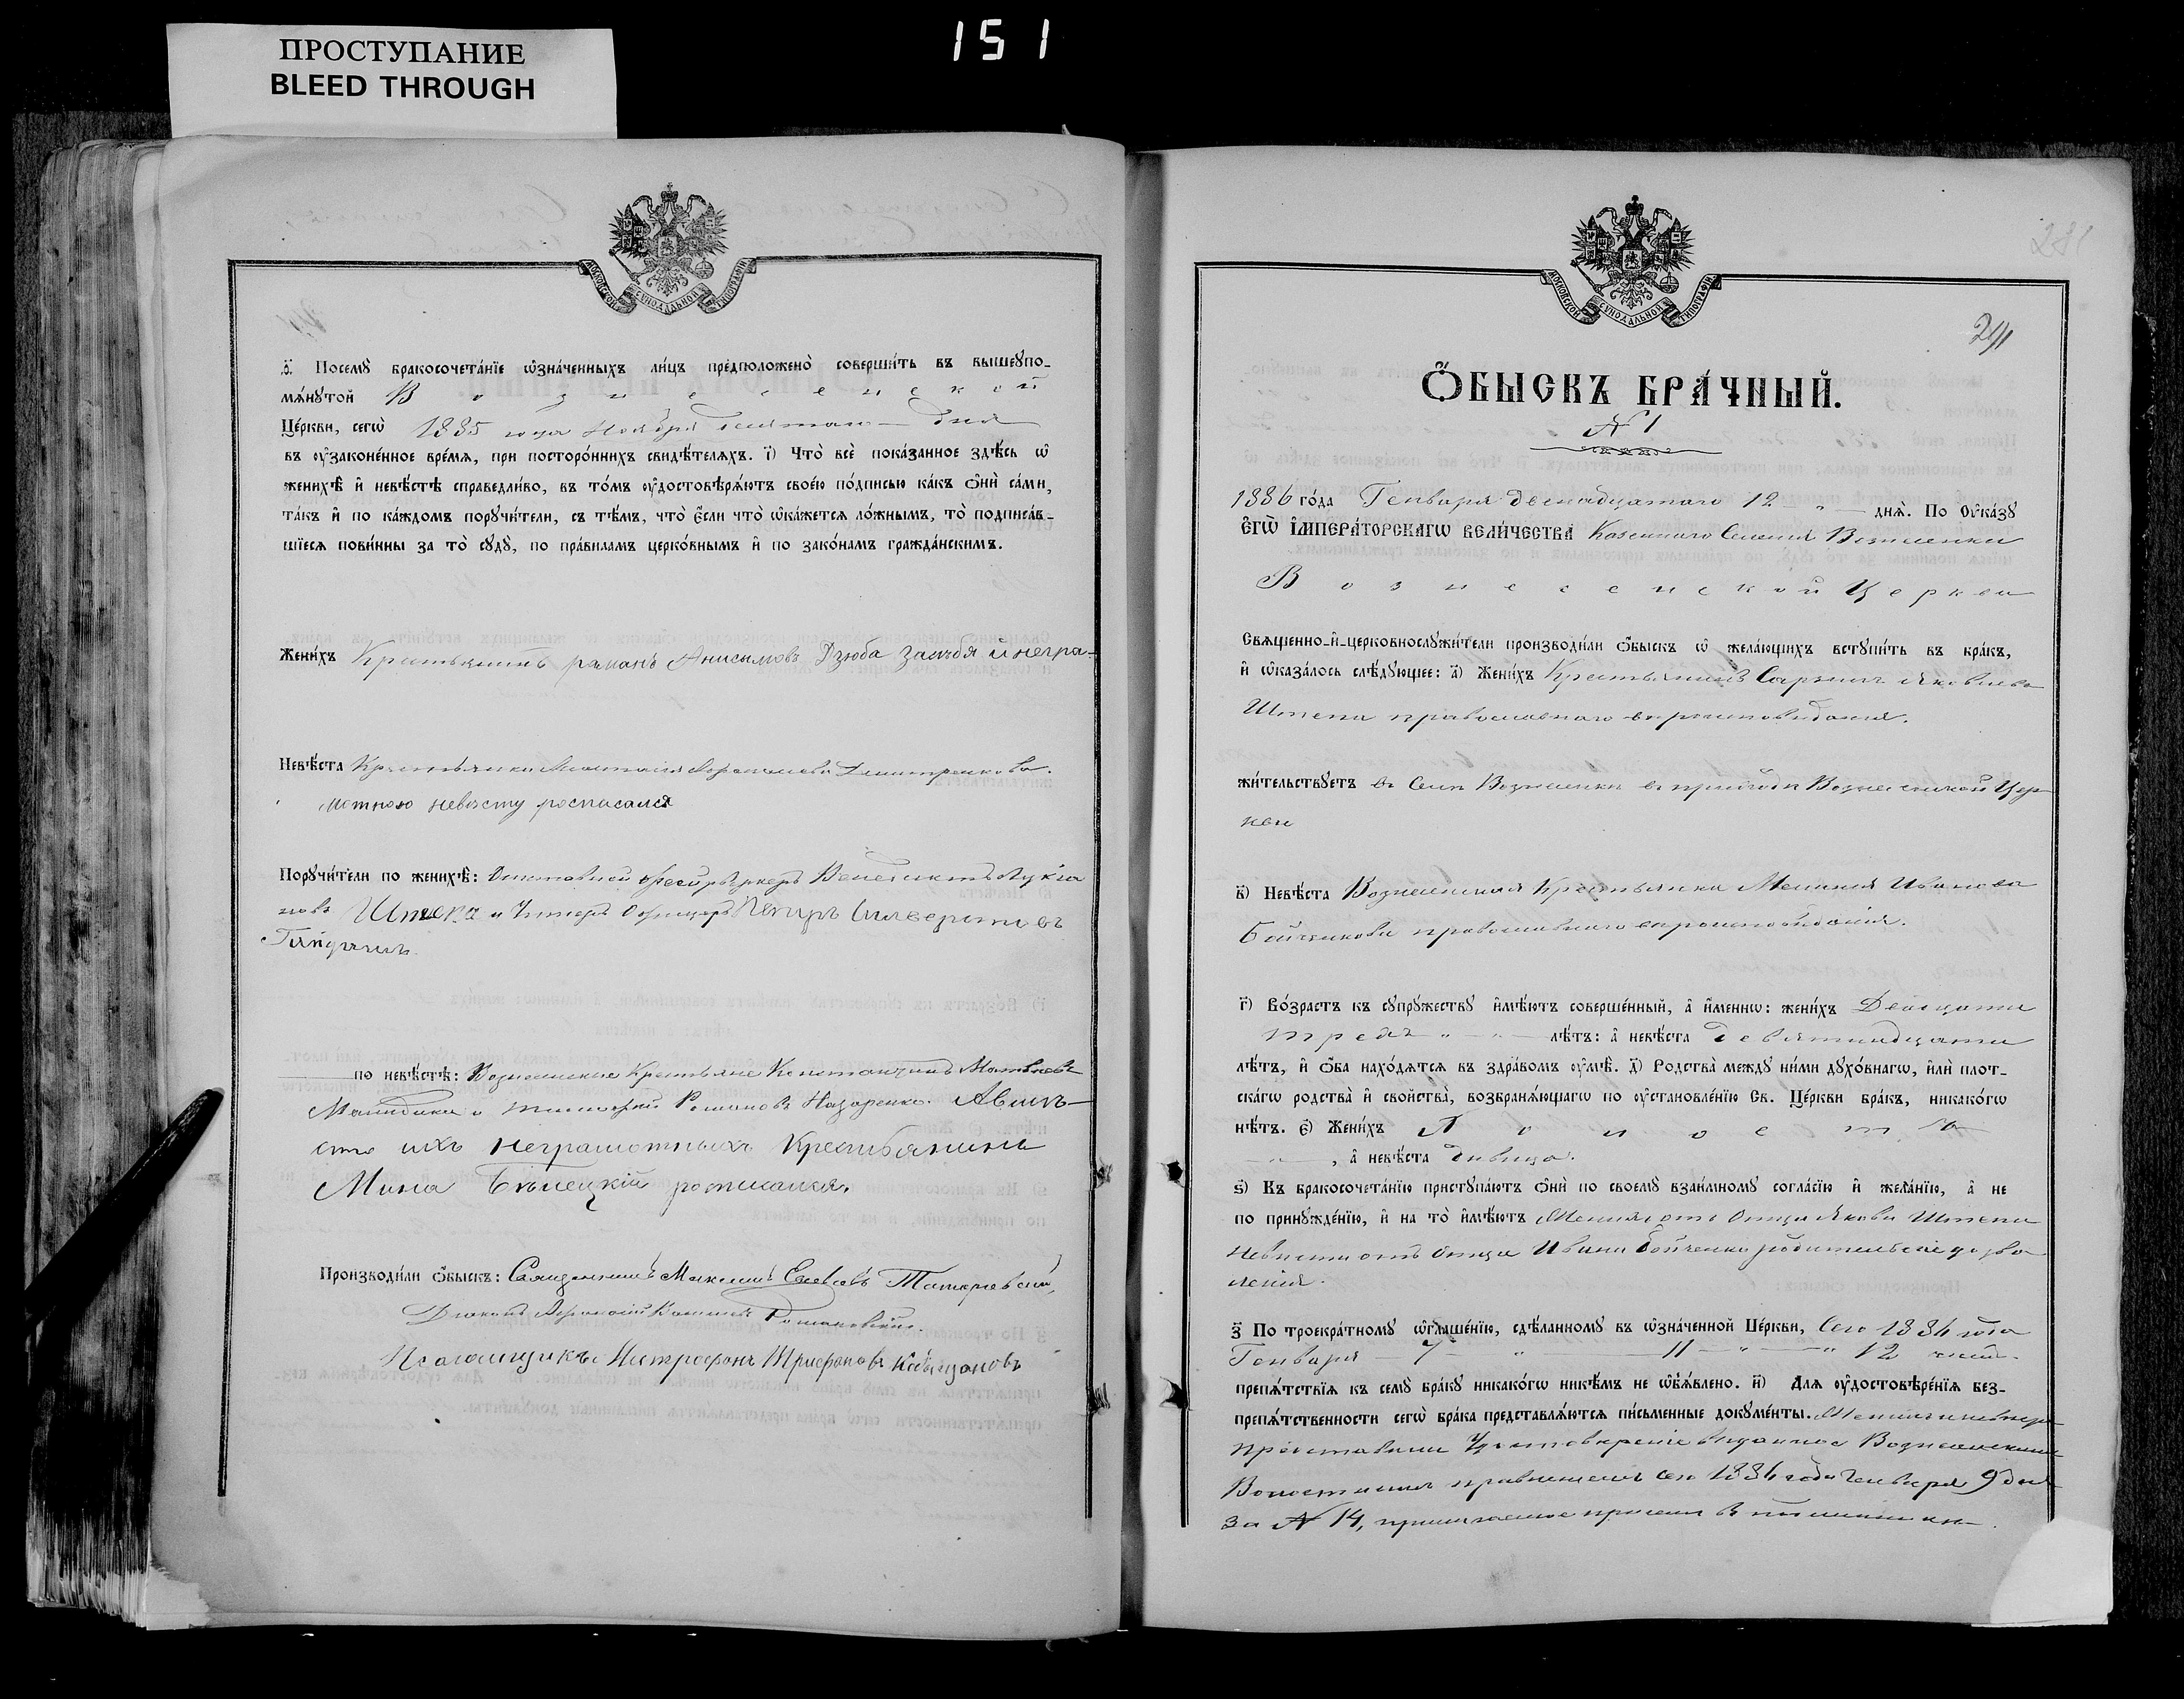 151
ПРОСТУПАНИЕ
BLEED THROUGH
МОСКОВСКОЙ СѴНОДАЛЬНОЙ ТИПОГРАФІИ
Посемꙋ бракосочета́нїе ѡ҆зна́ченныхъ ли́цъ предположено̀ соверши́ть въ вышеꙋпо-
мѧ́нꙋтой Вознесенской
Це́ркви, сегѡ̀ 1885 года Ноября девятаго дня
въ ᲂу҆зако́ненное вре́мѧ, при посторо́ннихъ свидѣ́телѧхъ. і҃) Что̀ всѐ пока́занное здѣ́сь ѡ҆
женихѣ̀ и҆ невѣ́стѣ справедли́во, въ то́мъ ᲂу҆достовѣрѧ́ютъ свое́ю по́дписью ка́къ ѻ҆нѝ са́ми,
та́къ и҆ по ка́ждомъ порꙋчи́тели, съ тѣ́мъ, что̀ є҆́сли что̀ ѡ҆ка́жетсѧ ло́жнымъ, то̀ подписа́в-
шїесѧ пови́нны за то̀ сꙋдꙋ̀, по пра́виламъ церко́внымъ и҆ по зако́намъ гражда́нскимъ.
Жени́хъ Крестьянинъ раманъ Анисимовъ Дзюба засебя и негра-
Невѣ́ста Крестьянка Анастасія Афанасіева Дмитренкова.
мотною невесту росписался
Порꙋчи́тели по женихѣ̀: Отставной Фейрверкеръ Венедиктъ Лукія
новъ Штепа и Унтеръ Офицеръ Петръ Силверстовъ
Гайдукъ.
по невѣ́стѣ: Вознесенскіе Крестьяне Константинъ Матвѣевъ
и Тимофей Романовъ Назаренко. Авмѣ-
сто ихъ неграмотныхъ Крестьянинъ
Мина Бѣлецкій росписался.
Производи́ли ѻ҆́быскъ: Священникъ Максимъ
Діаконъ Афанасій Романовскій.
Псаломщикъ Митрофанъ Трифоновъ
281
291
МОСКОВСКОЙ СѴНОДАЛЬНОЙ ТИПОГРАФІИ
Ѻ҆́БЫСКЪ БРА́ЧНЫЙ.
№ 1
1886 го́да Генваря двенадцатаго 12 днѧ̀. По Ѹ҆ка́зꙋ
Є҆ГѠ̀ И҆МПЕРА́ТОРСКАГѠ ВЕЛИ́ЧЕСТВА Казеннаго Селенія Вознесенки
Вознесенской Церкви
Свѧще́нно-и҆-церковнослꙋжи́тели производи́ли ѻ҆́быскъ ѡ҆ жела́ющихъ встꙋпи́ть въ бра́къ,
и҆ ѡ҆каза́лось слѣ́дꙋющее: а҃) Жени́хъ Крестьянинъ Яковлевъ
Штепа православнаго вероисповиданія.
жи́тельствꙋетъ въ Селе Вознесенке въ приходе Вознесенской Цер
кви
в҃) Невѣ́ста Вознесенская Крестьянка Меланія Иванова
Бойченкова православнаго вероисповиданія.
г҃) Во́зрастъ къ сꙋпрꙋ́жествꙋ и҆мѣ́ютъ соверше́нный, а҆ и҆́меннѡ: жени́хъ Двадцати
трехъ лѣ́тъ: а҆ невѣ́ста девятнадцати
лѣ́тъ, и҆ ѻ҆́ба нахо́дѧтсѧ въ здра́вомъ ᲂу҆мѣ̀. д҃) Родства̀ междꙋ ни́ми дꙋхо́внагѡ, и҆лѝ плот-
ска́гѡ родства̀ и҆ сво́йства, возбранѧ́ющагѡ по ᲂу҆становле́нїю Св. Це́ркви бра́къ, никако́гѡ
нѣ́тъ. є҃) Жени́хъ Холостъ
, а҆ невѣ́ста дивица.
ѕ҃) Къ бракосочета́нїю пристꙋпа́ютъ ѻ҆нѝ по своемꙋ̀ взаи́мномꙋ согла́сїю и҆ жела́нїю, а҆ не
по принꙋжде́нїю, и҆ на то̀ и҆мѣ́ютъ Женихъ отъ Отца Якова Штепы
невѣста отъ Отца Ивана Бойченка родительское дозво
ленія.
з҃) По троекра́тномꙋ ѡ҆глаше́нїю, сдѣ́ланномꙋ въ ѡ҆зна́ченной Це́ркви, Сего 1886 года
Генваря 7 11 12 чисел
препѧ́тствїѧ къ семꙋ̀ бра́кꙋ никако́гѡ никѣ́мъ не ѡ҆б̾ѧ́влено. и҃) Длѧ ᲂу҆достовѣре́нїѧ без-
препѧ́тственности сегѡ̀ бра́ка представлѧ́ютсѧ пи́сьменные докꙋме́нты. Женихъ и невеста
представили Удостовереніе выданное Вознесенскимъ
Волостнымъ правленіемъ сего 1886 года Генваря 9 дня
за № 14,